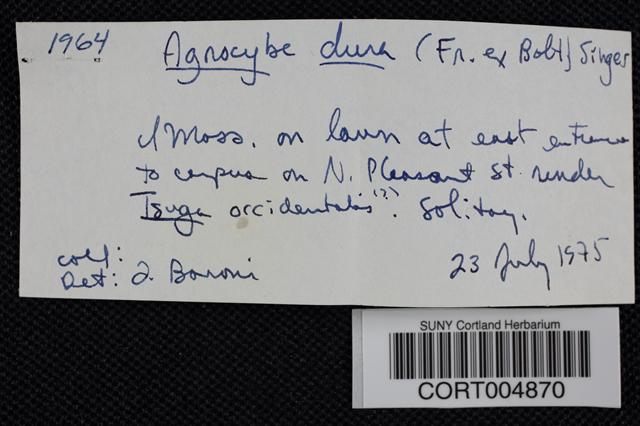 1964 Agrocybe dura (Fr. ex Bolt) Singer
Mass. on lawn at east entrance
to campus on N. Pleasant St. under
Tsuga occidentalis (?). Solitary.
coll:
Det: J. Baroni 23 July 1975
SUNY Cortland Herbarium
CORT004870